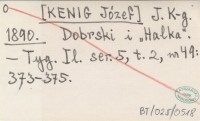 [KENIG Józef] J. K-g.
1890. Dobrski i „Halka".
- Tyg. Il. ser. 5, t. 2, nr 49:
373-375.
BT/025/0518